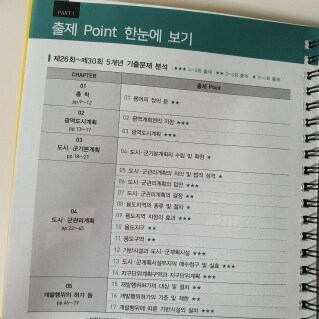 PART 1
출제 Point 한눈에 보기
제26회~제30회 5개년 기출문제 분석 ★★★ 4~5회 출제 ★★ 2~3회 출제 ★ 0~1회 출제
CHAPTER 출제 Point
01
총칙
pp.9~12
01 용어의 정의 등 ★★
02
광역도시계획
pp.13~17
02 광역계획권의 지정 ★★★
03 광역도시계획 ★★★
03
도시·군기본계획
pp.18~21
04 도시·군기본계획의 수립 및 확정 ★
04
도시·군관리계획
pp.22~65
05 도시·군관리계획의 의의 및 법적 성격 ★
06 도시·군관리계획의 입안 ★★★
07 도시·군관리계획의 결정 ★★
08 용도지역의 종류 및 절차 ★
09 용도지역 지정의 효과 ★★★
10 용도지구 ★★
11 용도구역 ★★
12 기반시설과 도시·군계획시설 ★★★
13 도시·군계획시설부지의 매수청구 및 실효 ★★★
14 지구단위계획구역과 지구단위계획 ★★★
05
개발행위의 허가 등
pp.66~79
15 개발행위허가의 대상 및 절차 ★★
16 개발행위허가의 기준 및 제한 ★★
17 개발행위에 따른 기반시설의 설치 ★★★